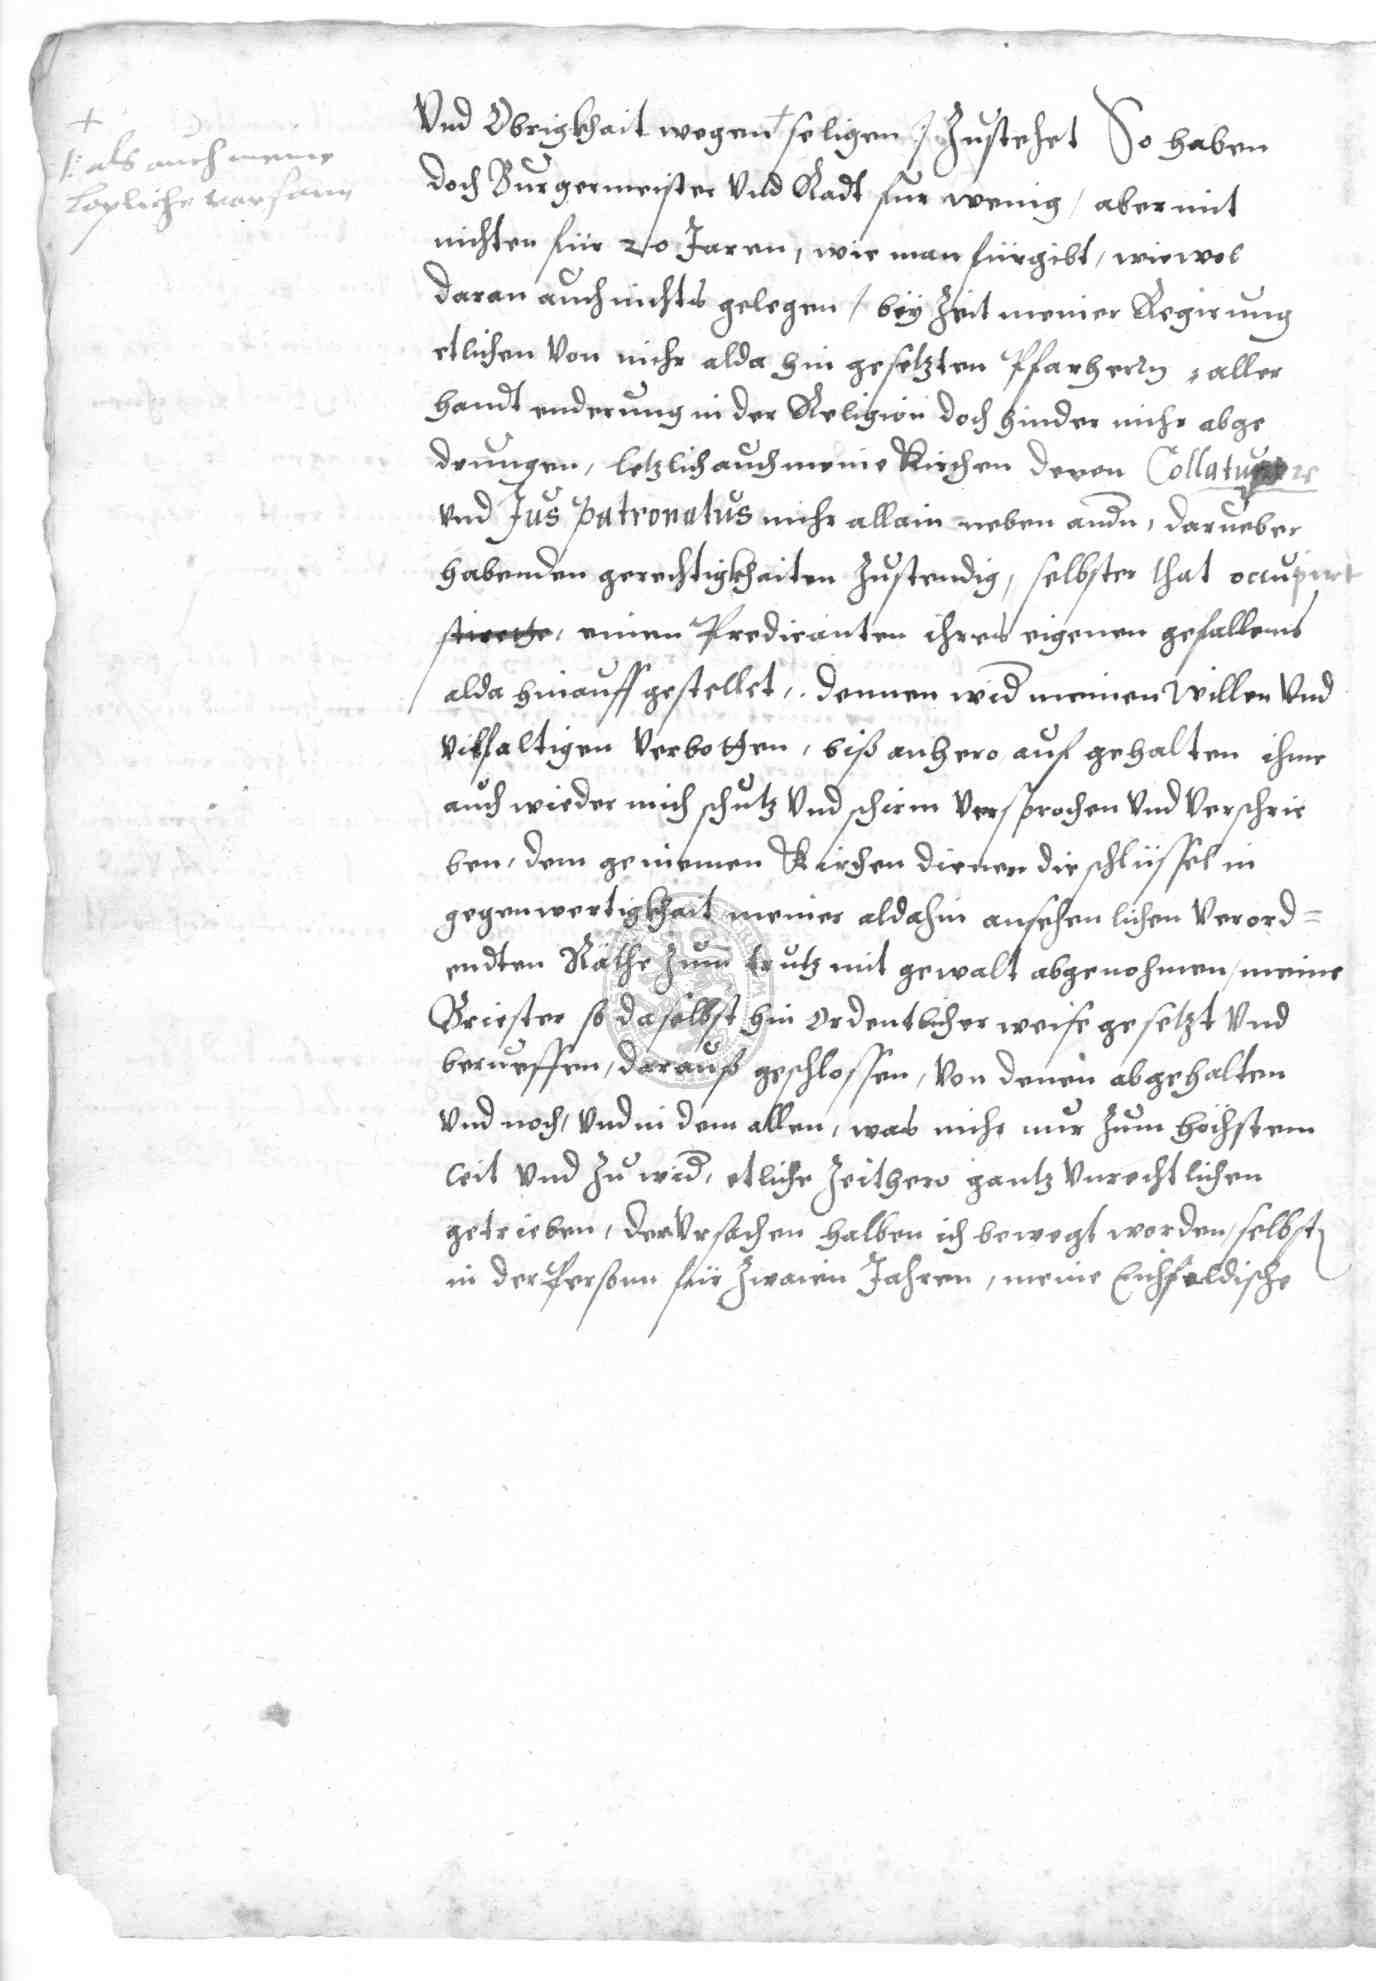 +
/: als auch meine
löpliche vorfarn
Vnd Obrigkhait wegen + seligen / Zustehet So haben
doch Burgermeister Vnd Radt fur wenig / aber mit
nichten für 20 Jaren, wie man fürgibt, wiewol
daran auch nichts gelegen / bey Zeit meiner Regirung
etlichen Von mihr alda hin gesetzten Pfarherrn, aller
handt enderung in der Religion doch hinder mihr abge
drungen, letzlich auch meine Kirchen deren Collature
vnd Jus patronatus mihr allain neben andn, darueber
habenden gerechtigkhaiten Zustendig, selbster that occupirt
einen Predicanten ihres eigenen gefallens
alda hinauff gestellet, dennen wid meinen Willen Vnd
Vilfaltigen Verbotten, biß anhero auf gehalten ihme
auch wieder mich schutz Vnd schirm Versprochen Vnd Verschrie
ben, dem gemeinen Kirchen diener die schlüssel in
gegenwertigkhait meiner aldahin ansehenlichen Verord=
endten Räthe Zum trutz mit gewalt abgenohmen, meine
Briester so daselbst hin ordentlicher weise gesetzt Vnd
berueffen, darauß geschlossen, Von denen abgehalten
Vnd noch, Vnd in dem allen, was mihr nur Zum höchstem
leit Vnd Zu wid, etliche Zeithero gantz Vnrechtlichen
getrieben, der Vrsachen halben ich bewegt worden, selbst
in der Person für Zwaien Jahren, meine Eichsfeldische